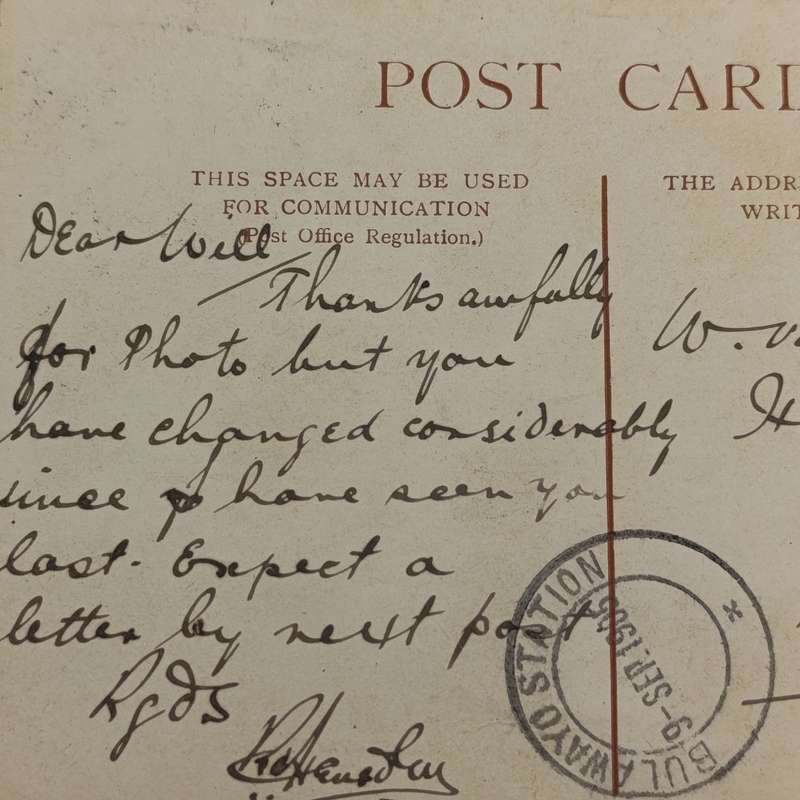 POST CARD
THIS SPACE MAY BE USED
FOR COMMUNICATION
(Post Office Regulation.)
THE ADDR
WRIT
Dear Will
Thanks awfully
for Photo but you
have changed considerably
since I have seen you
last. Expect a
letter by next post
Rgds
W.
H
BULAWAYO STATION
9 SEP 1905